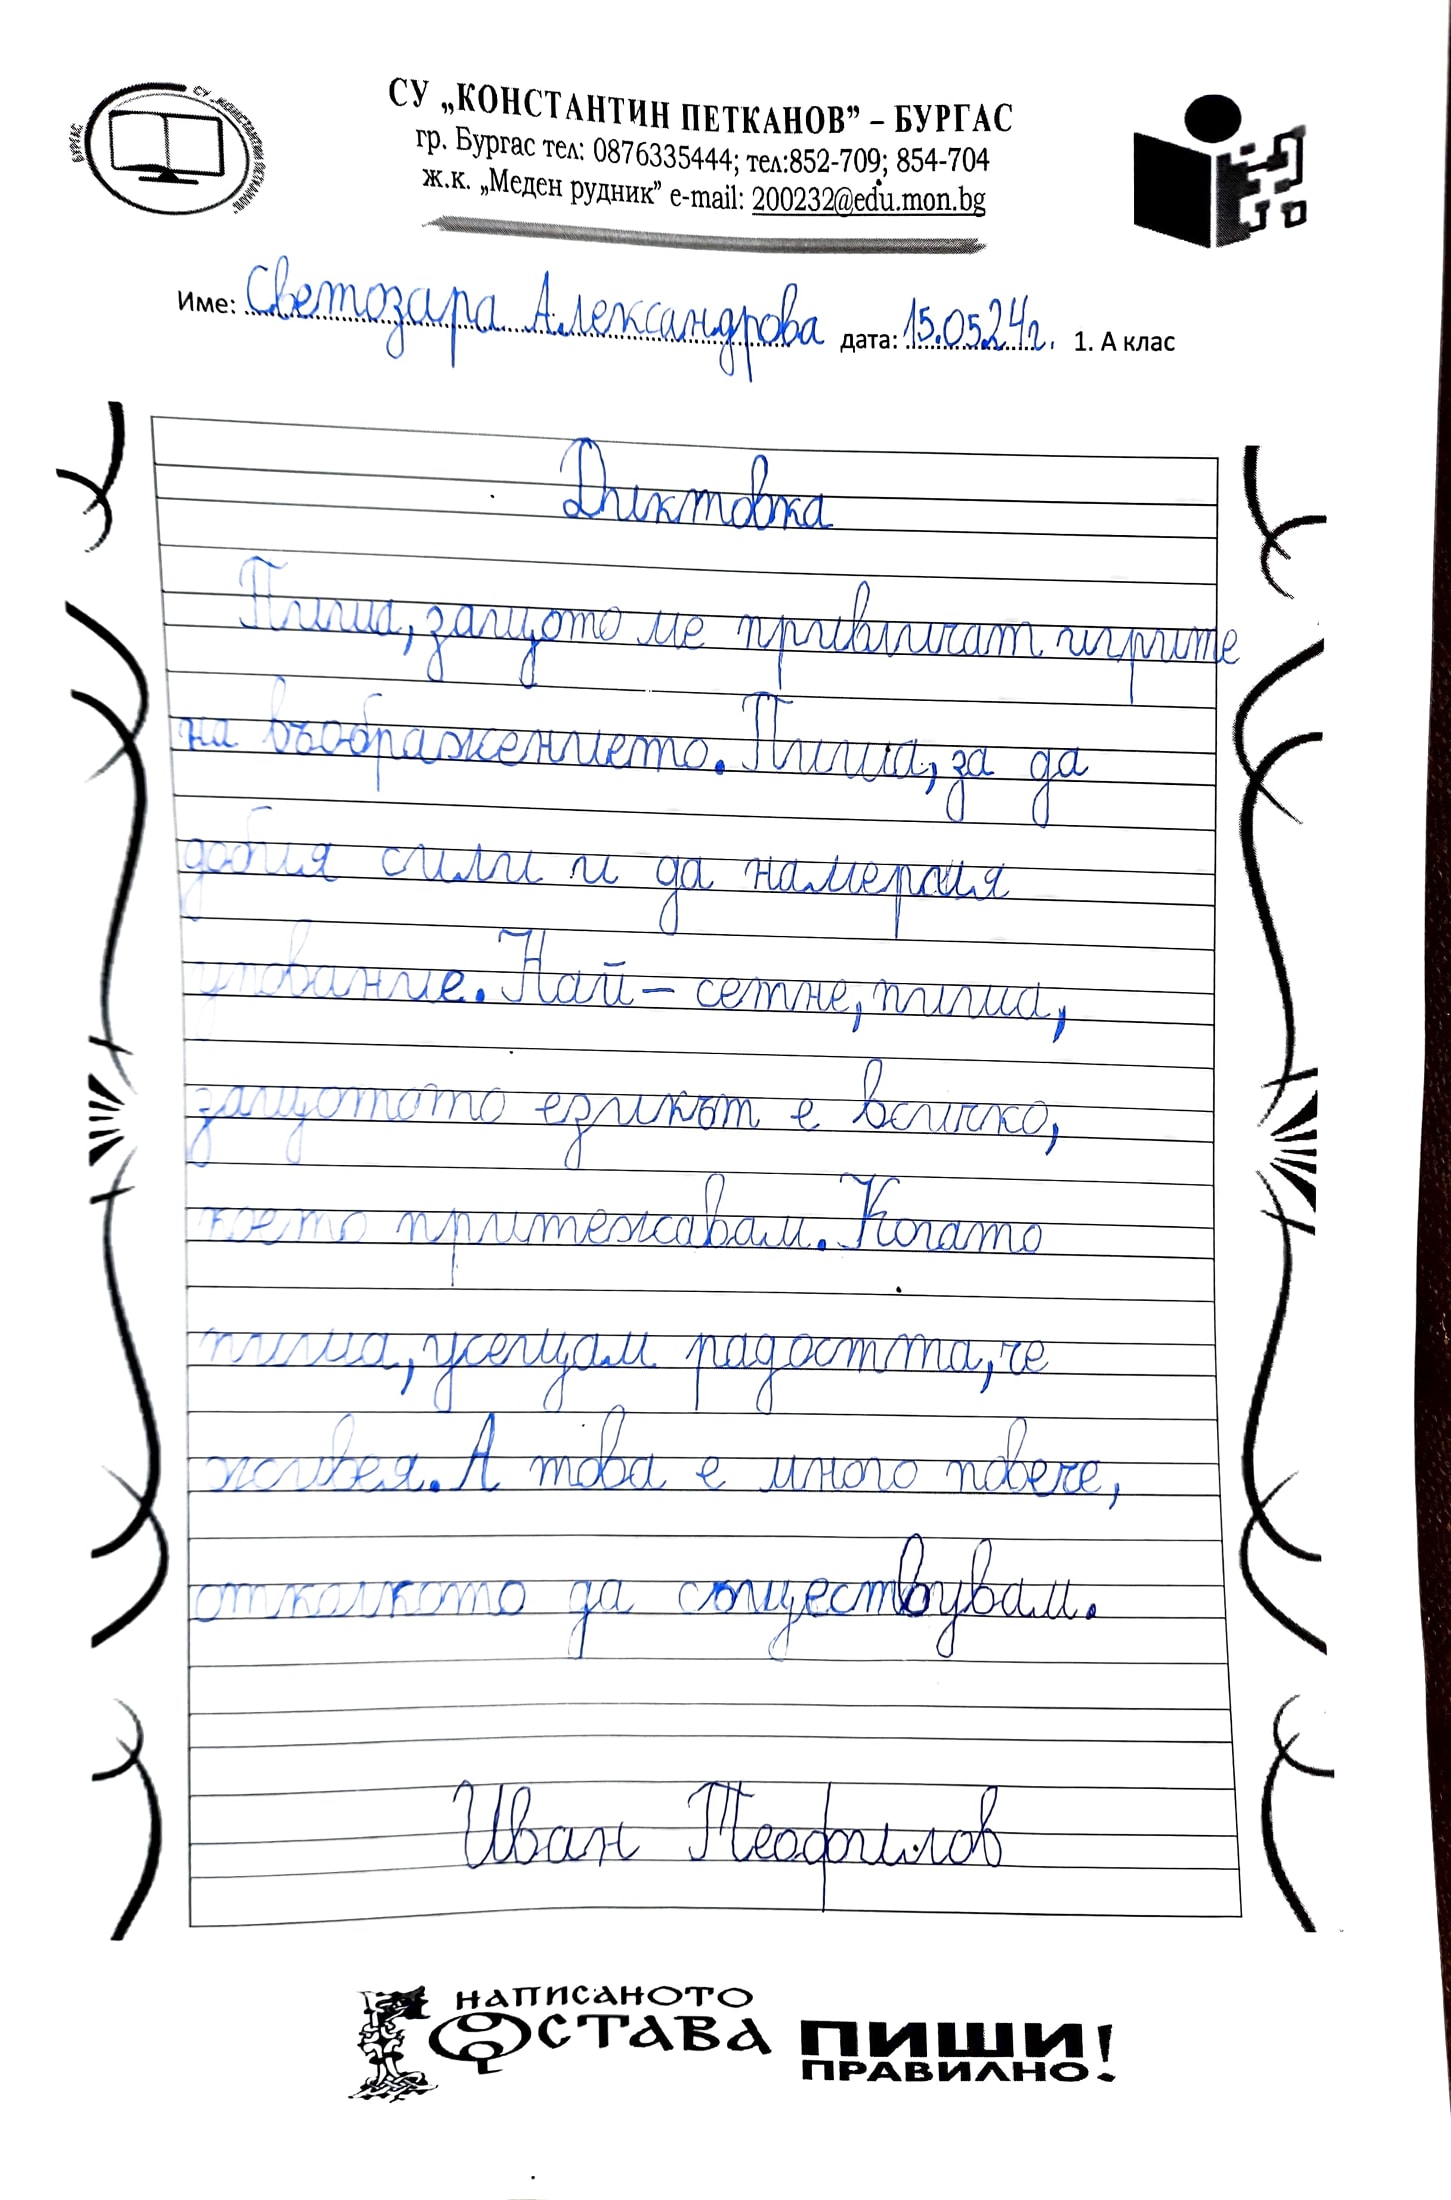 СУ „КОНСТАНТИН ПЕТКАНОВ” – БУРГАС
гр. Бургас тел: 0876335444; тел:852-709; 854-704
ж.к. „Меден рудник” e-mail: 200232@edu.mon.bg
БУРГАС СУ „КОНСТАНТИН ПЕТКАНОВ”
Име: Светозара Александрова дата: 15.05.24г. 1. А клас
Диктовка
Пиша, защото ме привличат игрите
на въображението. Пиша, за да
добия сили и да намеря
упование. Най – сетне, пиша,
защотото езикът е всичко,
което притежавам. Когато
пиша, усещам радостта, че
живея. А това е много повече,
отколкото да съществувам.
Иван Теофилов
НАПИСАНОТО
ОСТАВА ПИШИ
ПРАВИЛНО!